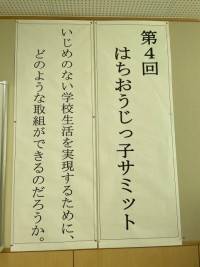 第4回
はちおうじっ子サミット
いじめのない学校生活を実現するために、
どのような取組ができるのだろうか。